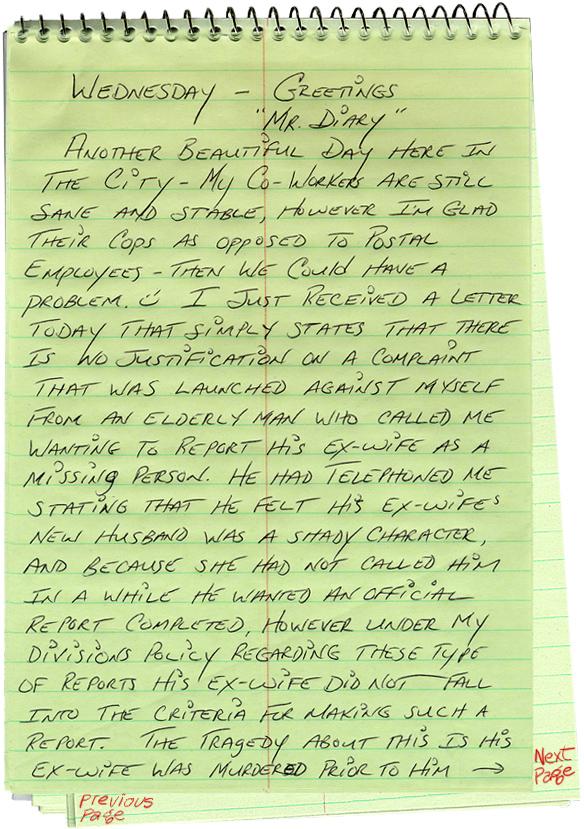 WEDNESDAY - GREETINGS
"MR. DIARY"
ANOTHER BEAUTIFUL DAY HERE IN
THE CITY - MY CO-WORKERS ARE STILL
SANE AND STABLE, HOWEVER I'M GLAD
THEIR COPS AS OPPOSED TO POSTAL
EMPLOYEES - THEN WE COULD HAVE A
PROBLEM. I JUST RECEIVED A LETTER
TODAY THAT SIMPLY STATES THAT THERE
IS NO JUSTIFICATION ON A COMPLAINT
THAT WAS LAUNCHED AGAINST MYSELF
FROM AN ELDERLY MAN WHO CALLED ME
WANTING TO REPORT HIS EX-WIFE AS A
MISSING PERSON. HE HAD TELEPHONED ME
STATING THAT HE FELT HIS EX-WIFES
NEW HUSBAND WAS A SHADY CHARACTER,
AND BECAUSE SHE HAD NOT CALLED HIM
IN A WHILE HE WANTED AN OFFICIAL
REPORT COMPLETED, HOWEVER UNDER MY
DIVISIONS POLICY REGARDING THESE TYPE
OF REPORTS HIS EX-WIFE DID NOT FALL
INTO THE CRITERIA FOR MAKING SUCH A
REPORT. THE TRAGEDY ABOUT THIS IS HIS
EX-WIFE WAS MURDERED PRIOR TO HIM →
Next
Page
Previous
Page